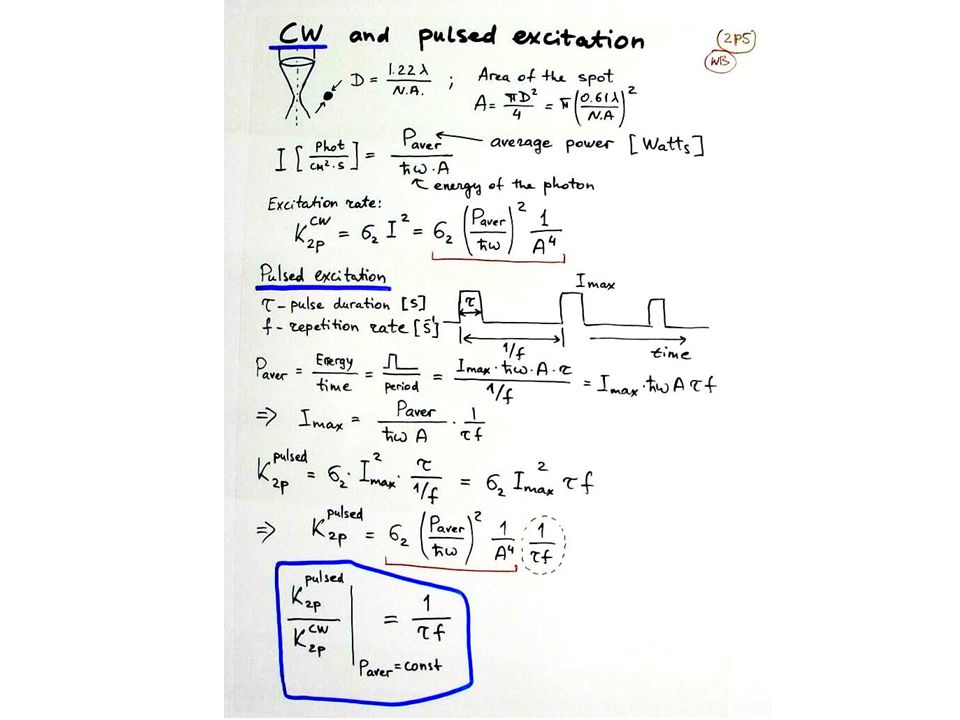 CW and pulsed excitation
2PS
WB
D = 1.22λ / N.A. ; Area of the spot
A = πD² / 4 = π(0.61λ / N.A)²
I [Phot / cm²·s] = Paver / ħω·A ← average power [Watts]
↖ energy of the photon
Excitation rate:
K₂ₚ^CW = б₂ I² = б₂ (Paver / ħω)² 1 / A⁴
Pulsed excitation
τ – pulse duration [s]
f – repetition rate [s̄¹]
τ
Imax
1/f
time
Paver = Energy / time = period = Imax·ħω·A·τ / 1/f = Imax·ħωAτf
⇒ Imax = Paver / ħωA · 1 / τf
K₂ₚ^pulsed = б₂·I²max· τ / 1/f = б₂ I²max τf
⇒ K₂ₚ^pulsed = б₂ (Paver / ħω)² 1 / A⁴ 1 / τf
K₂ₚ^pulsed / K₂ₚ^CW | Paver=const = 1 / τf